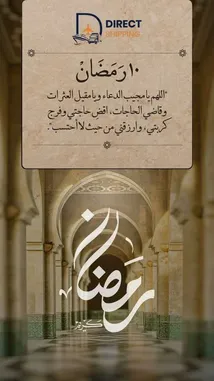 DIRECT
SHIPPING
١٠ رَمَضَانْ
"اللهم يا مجيب الدعاء ويا مقيل العثرات
وقاضي الحاجات، اقض حاجتي وفرج
كربتي، وارزقني من حيث لا أحتسب".
رمضان
كريم